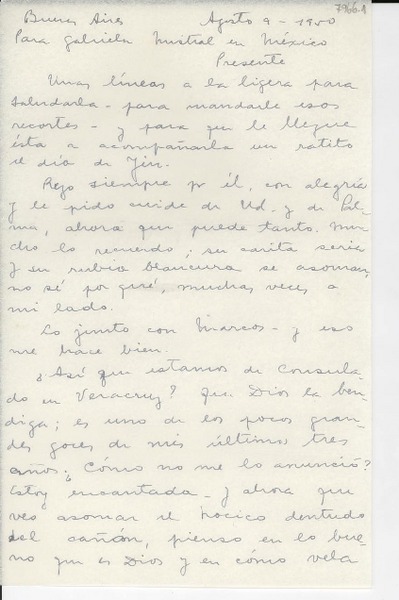 7966-A
Buenos Aires Agosto 9 - 1950
Para Gabriela Mistral en México
Presente
Unas líneas a la ligera para
saludarla - para mandarle esos
recortes - y para que le llegue
ésta a acompañarla un ratito
el día de Yin.
Rezo siempre pr él, con alegría
y le pido cuide de Ud. y de Pal-
ma, ahora que puede tanto. Mu-
cho lo recuerdo; su carita seria
y su rubia blancura se asoman,
no sé por qué, muchas veces, a
mi lado.
Lo junto con Marcos - y eso
me hace bien.
¿Así que estamos de Consula-
do en Veracruz? Que Dios la ben-
diga; es uno de los pocos gran-
des goces de mis últimos tres
años. ¿Cómo no me lo anunció?
Estoy encantada - y ahora que
veo asomar el hocico dentudo
del cañón, pienso en lo bue-
no que es Dios y en cómo vela